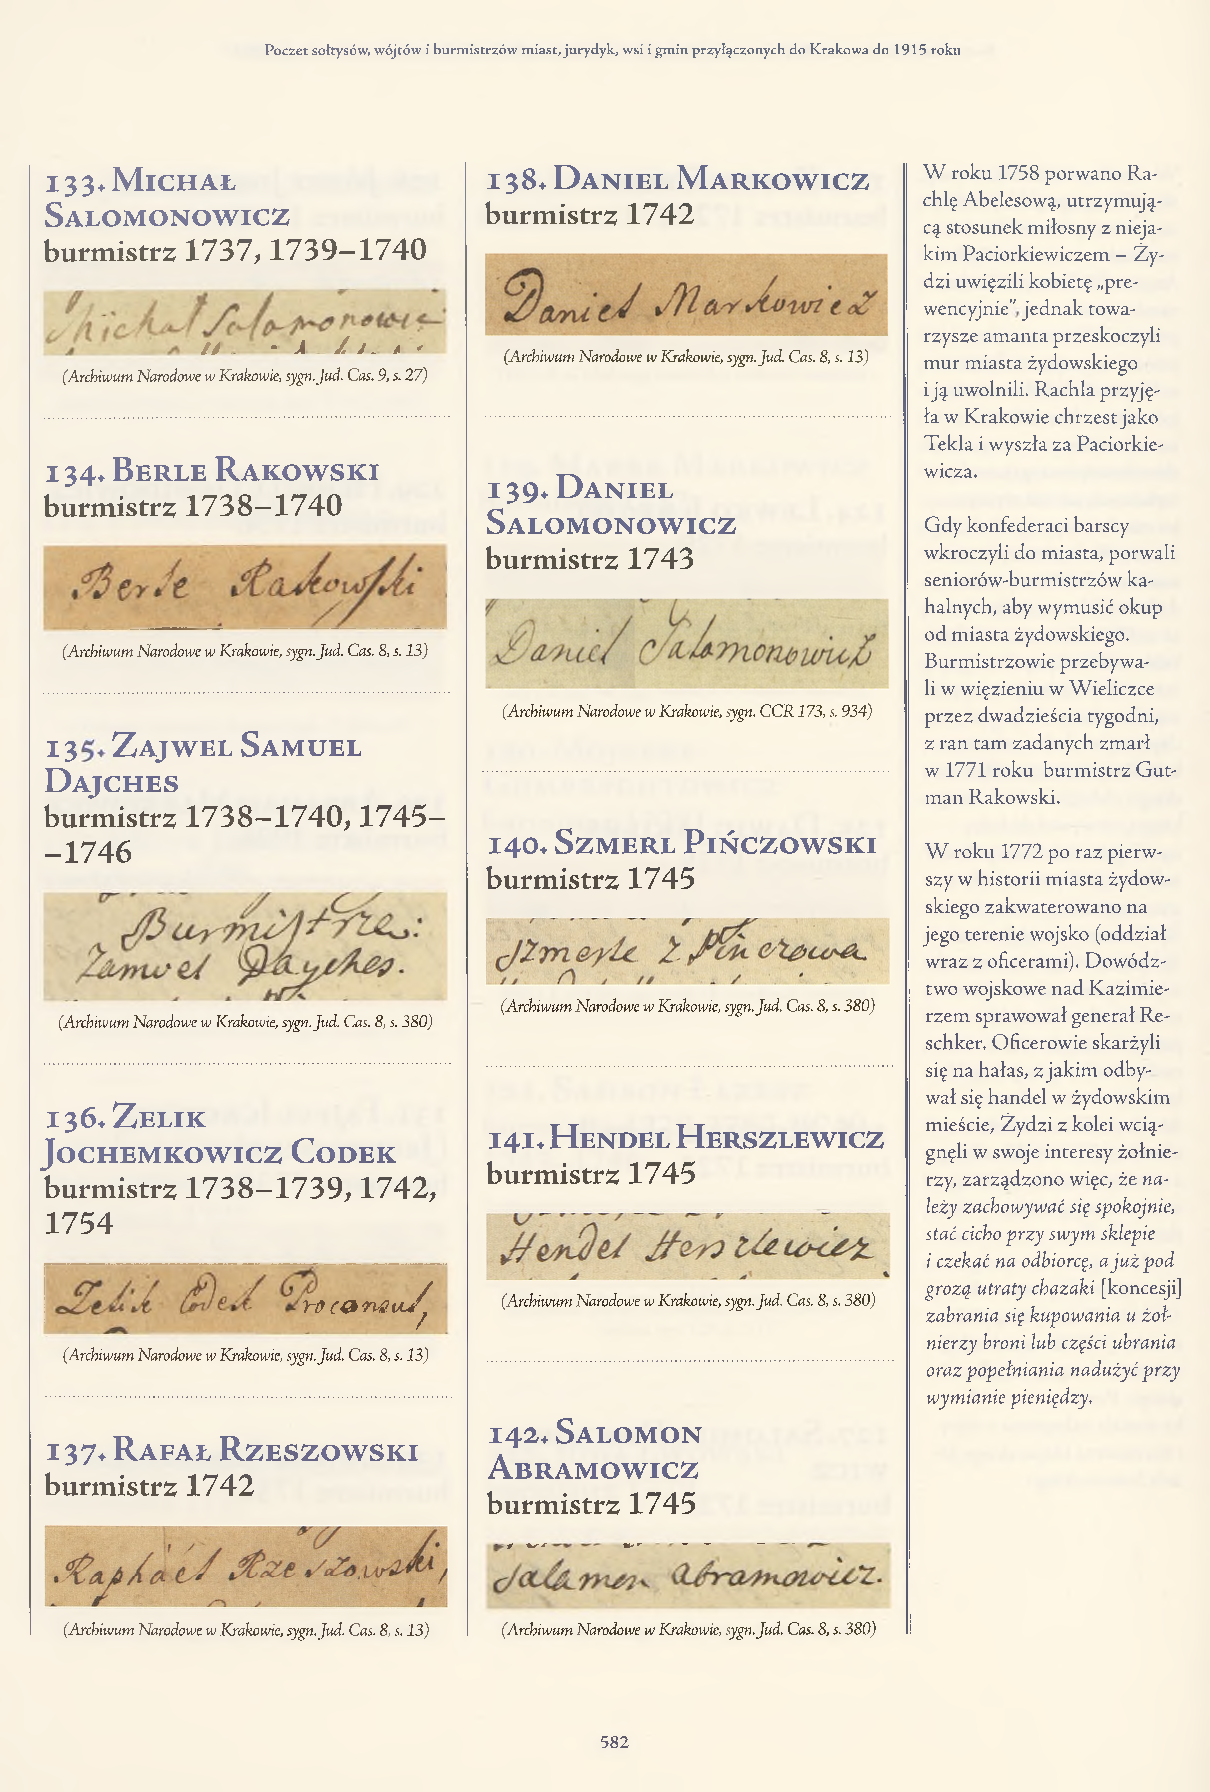 Poczet sołtysów, wójtów i burmistrzów miast, jurydyk, wsi i gmin przyłączonych do Krakowa do 1915 roku
133. Michał
Salomonowicz
burmistrz 1737, 1739–1740
Michał Salomonowicz
(Archiwum Narodowe w Krakowie, sygn. Jud. Cas. 9, s. 27)
134. Berle Rakowski
burmistrz 1738–1740
Berle Rakowski
(Archiwum Narodowe w Krakowie, sygn. Jud. Cas. 8, s. 13)
135. Zajwel Samuel
Dajches
burmistrz 1738–1740, 1745–
–1746
Burmistrze:
Zamwel Dayches.
(Archiwum Narodowe w Krakowie, sygn. Jud. Cas. 8, s. 380)
136. Zelik
Jochemkowicz Codek
burmistrz 1738–1739, 1742,
1754
Zelik Codek Proconsul,
(Archiwum Narodowe w Krakowie, sygn. Jud. Cas. 8, s. 13)
137. Rafał Rzeszowski
burmistrz 1742
Raphael Rzeszowski,
(Archiwum Narodowe w Krakowie, sygn. Jud. Cas. 8, s. 13)
138. Daniel Markowicz
burmistrz 1742
Daniel Markowicz
(Archiwum Narodowe w Krakowie, sygn. Jud. Cas. 8, s. 13)
139. Daniel
Salomonowicz
burmistrz 1743
Daniel Salomonowicz
(Archiwum Narodowe w Krakowie, sygn. CCR 173, s. 934)
140. Szmerl Pińczowski
burmistrz 1745
Szmerle z Pinczowa
(Archiwum Narodowe w Krakowie, sygn. Jud. Cas. 8, s. 380)
141. Hendel Herszlewicz
burmistrz 1745
Hendel Herszlewicz
(Archiwum Narodowe w Krakowie, sygn. Jud. Cas. 8, s. 380)
142. Salomon
Abramowicz
burmistrz 1745
Salamon Abramowicz.
(Archiwum Narodowe w Krakowie, sygn. Jud. Cas. 8, s. 380)
W roku 1758 porwano Ra-
chlę Abelesową, utrzymują-
cą stosunek miłosny z nieja-
kim Paciorkiewiczem – Ży-
dzi uwięzili kobietę „pre-
wencyjnie”, jednak towa-
rzysze amanta przeskoczyli
mur miasta żydowskiego
i ją uwolnili. Rachla przyję-
ła w Krakowie chrzest jako
Tekla i wyszła za Paciorkie-
wicza.
Gdy konfederaci barscy
wkroczyli do miasta, porwali
seniorów-burmistrzów ka-
halnych, aby wymusić okup
od miasta żydowskiego.
Burmistrzowie przebywa-
li w więzieniu w Wieliczce
przez dwadzieścia tygodni,
z ran tam zadanych zmarł
w 1771 roku burmistrz Gut-
man Rakowski.
W roku 1772 po raz pierw-
szy w historii miasta żydow-
skiego zakwaterowano na
jego terenie wojsko (oddział
wraz z oficerami). Dowódz-
two wojskowe nad Kazimie-
rzem sprawował generał Re-
schker. Oficerowie skarżyli
się na hałas, z jakim odby-
wał się handel w żydowskim
mieście, Żydzi z kolei wcią-
gnęli w swoje interesy żołnie-
rzy, zarządzono więc, że na-
leży zachowywać się spokojnie,
stać cicho przy swym sklepie
i czekać na odbiorcę, a już pod
grozą utraty chazaki [koncesji]
zabrania się kupowania u żoł-
nierzy broni lub części ubrania
oraz popełniania nadużyć przy
wymianie pieniędzy.
582